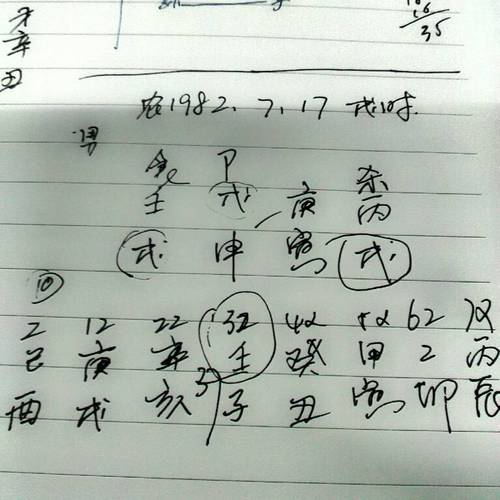 35
辛
丑
农1982.7.17 戌时
男
食 卩 杀
壬 戊 庚 丙
戌 申 寅 戌
10
2 12 22 32 42 52 62 72
己 庚 辛 壬 癸 甲 乙 丙
酉 戌 亥 子 丑 寅 卯 辰